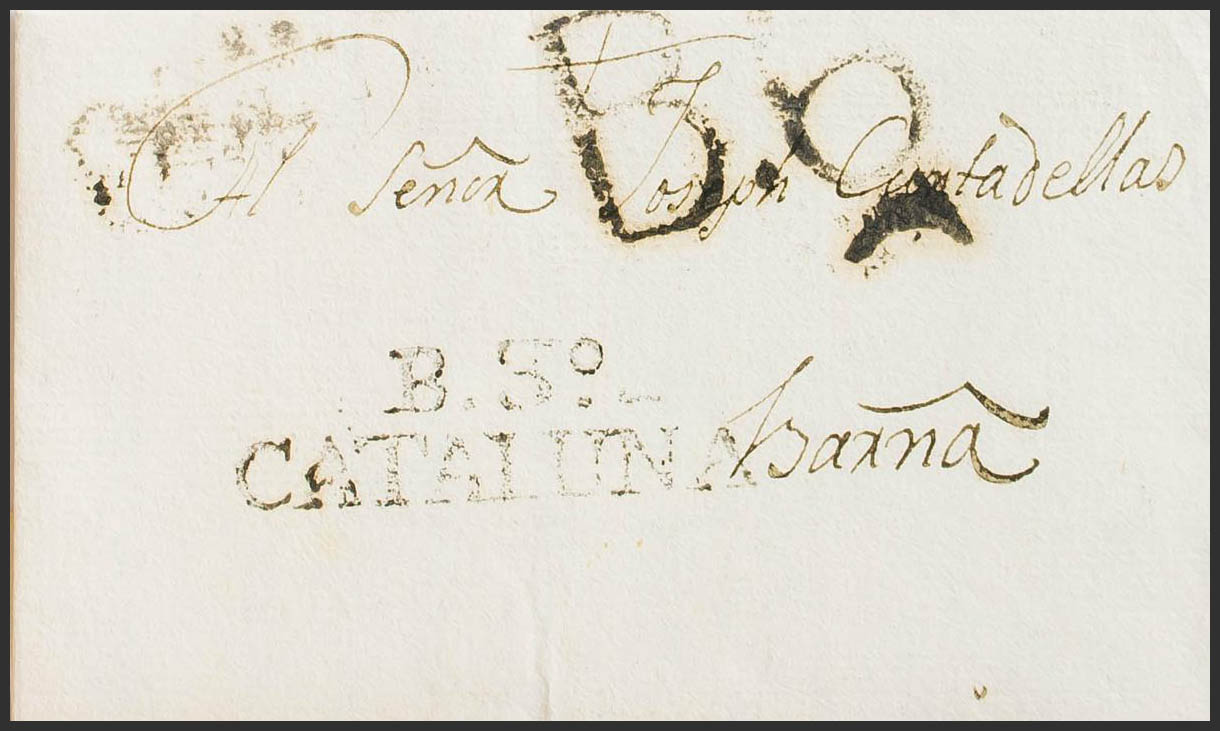 Al Señor Joseph Contadellas
B.S.º
CATALUNA
Barna